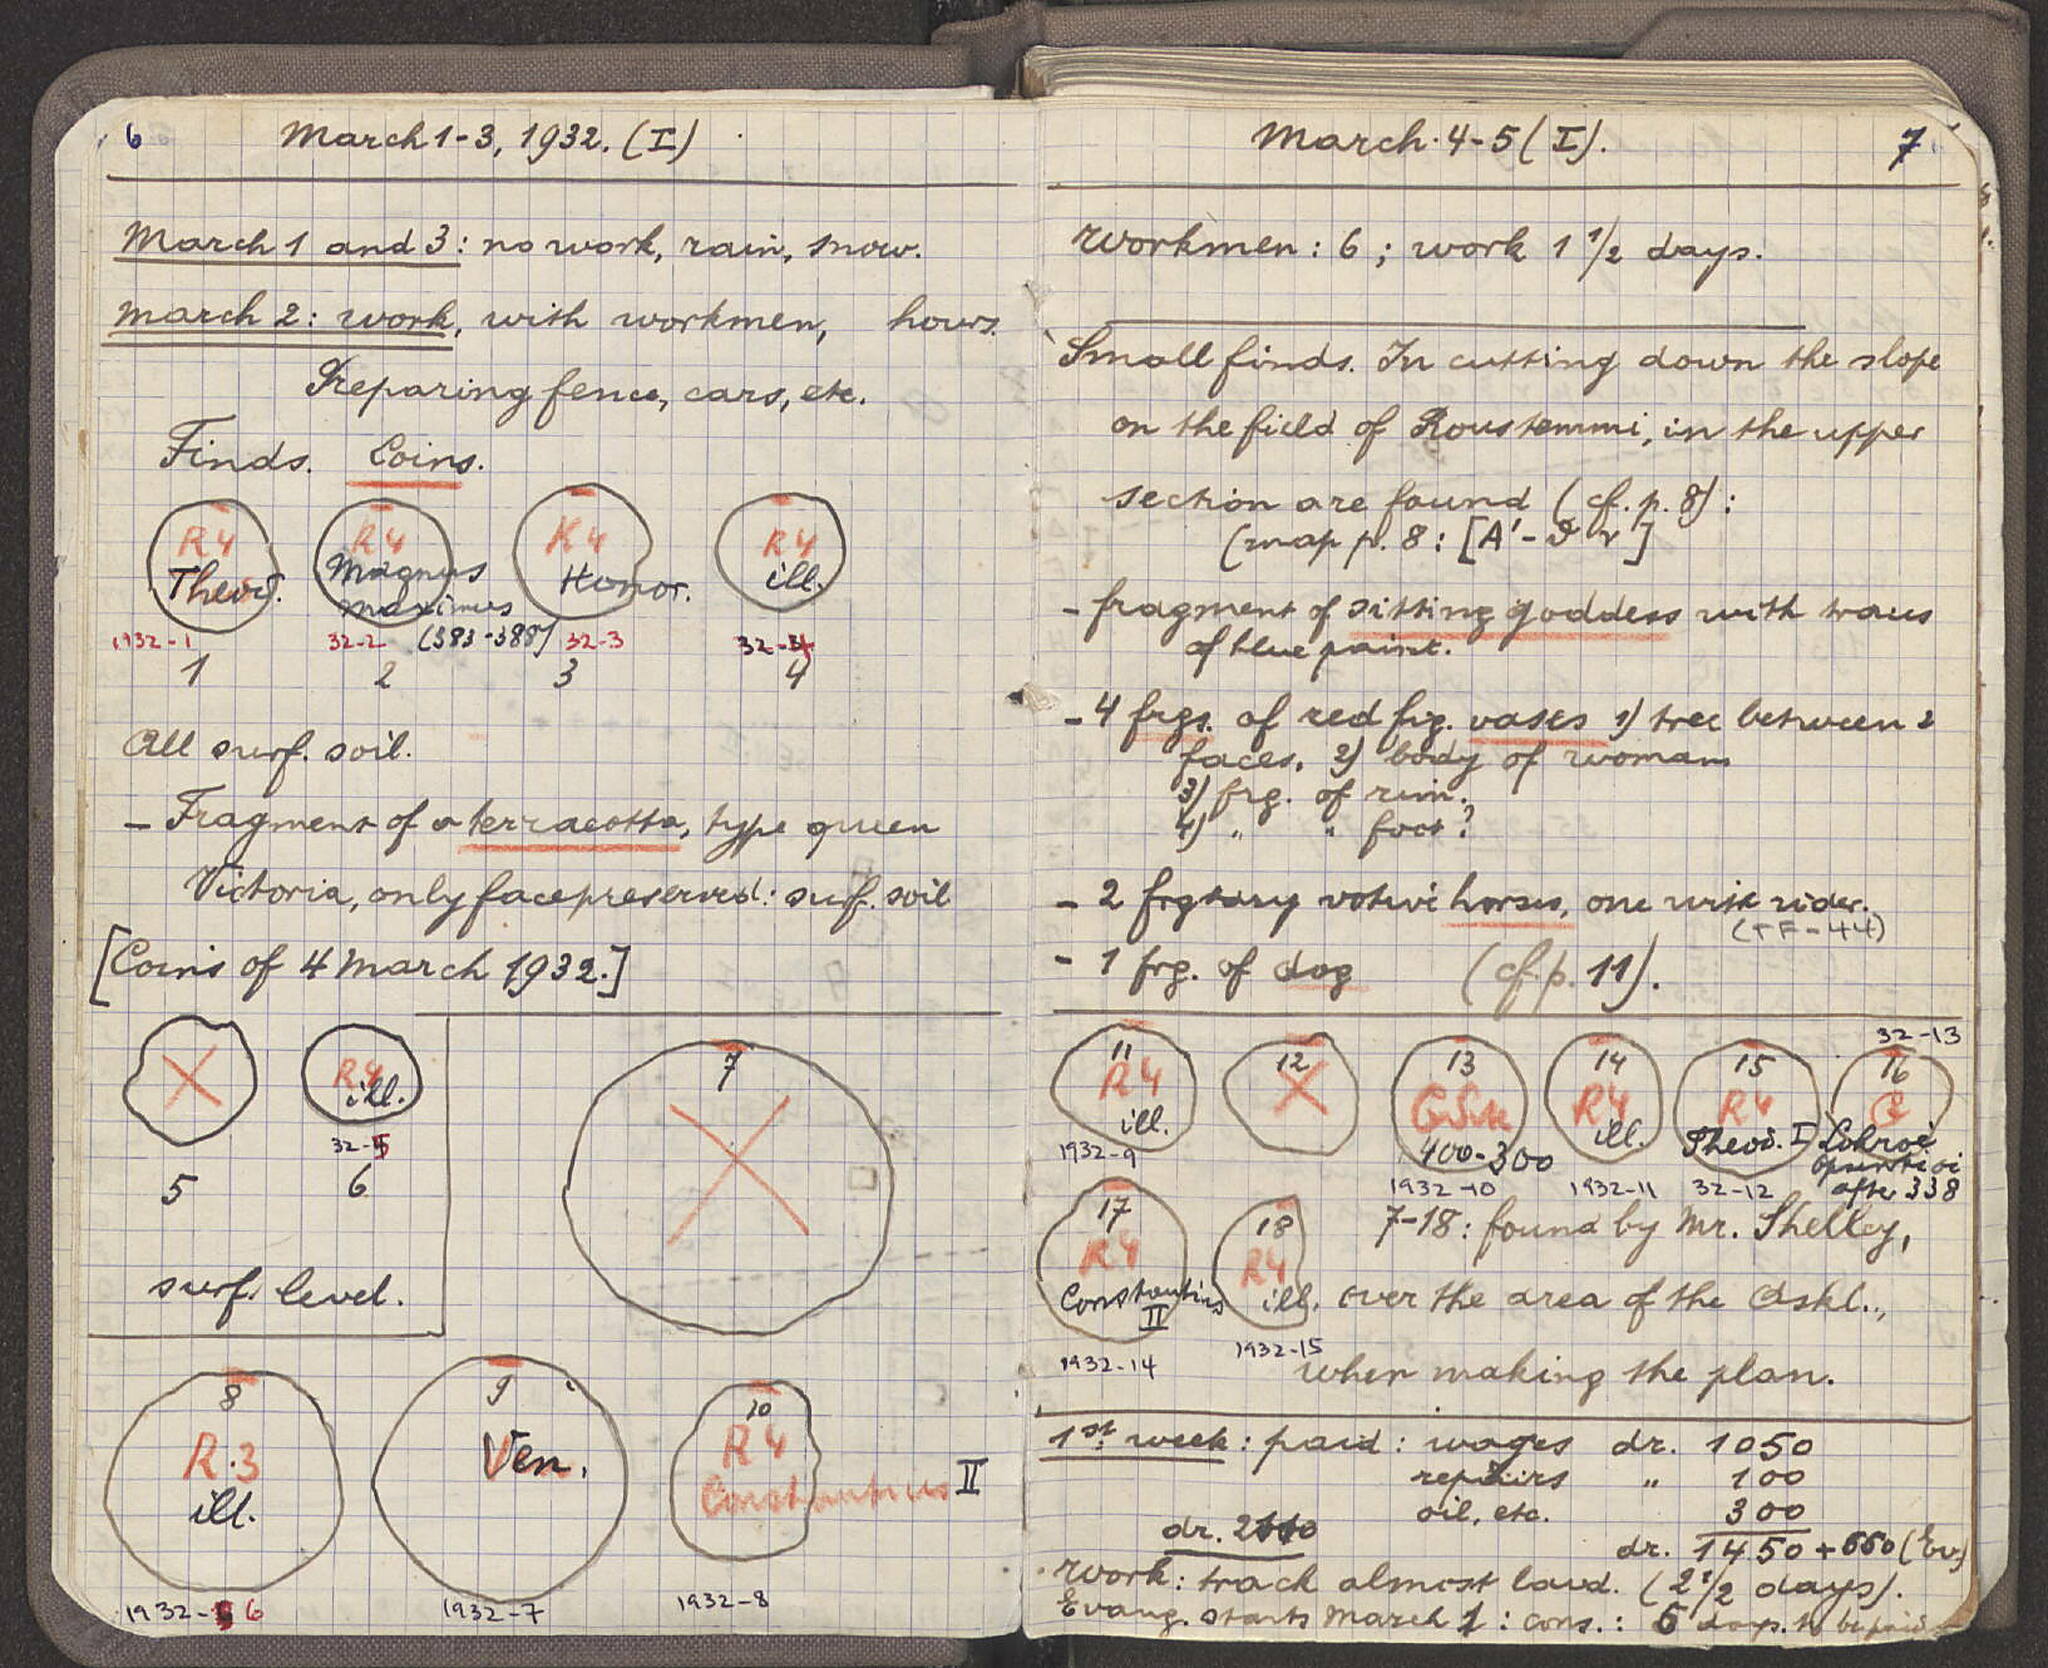 6 March 1-3, 1932. (I)
March 1 and 3: no work, rain, snow.
March 2: work, with workmen, hours.
Preparing fence, cars, etc.
Finds. Coins.
R4 R4 R4 R4
Theod. Magnus Honor. ill.
maximus
1932-1 32-2 (383-388) 32-3 32-4
1 2 3 4
All surf. soil.
- Fragment of a terracotta, type queen
Victoria, only face preserved: surf. soil
[Coins of 4 March 1932.]
R4
ill.
32-5
5 6
surf. level.
7
8 9 10
R.3 Ven. R4
ill. Constantius II
1932-6 1932-7 1932-8
March 4-5 (I). 7
Workmen: 6; work 1 1/2 days.
Small finds. In cutting down the slope
on the field of Roustemmi, in the upper
section are found (cf. p. 8):
(map p. 8: [A'-
- fragment of sitting goddess with traces
of blue paint.
- 4 frgs. of red fig. vases 1) tree between 2
faces, 2) body of woman
3) frg. of rim.
4) " " foot?
- 2 votive horses, one with rider.
(TF-44)
- 1 frg. of dog (cf. p. 11).
32-13
11 12 13 14 15 16
R4 R4 R4
ill. 400-300 ill. Theod. I Lokroi
after 338
1932-9 1932-10 1932-11 32-12
17 18
R4 R4
Constantius II ill.
1932-14 1932-15
7-18: found by Mr. Shelley,
over the area of the Askl.,
when making the plan.
1st. week: paid: wages dr. 1050
repairs " 100
oil, etc. 300
dr. 1450 + 660 (Ev.)
dr. 2110
Work: track almost laid. (2 1/2 days).
Evang. starts March 1: cons.: 6 days. to be paid